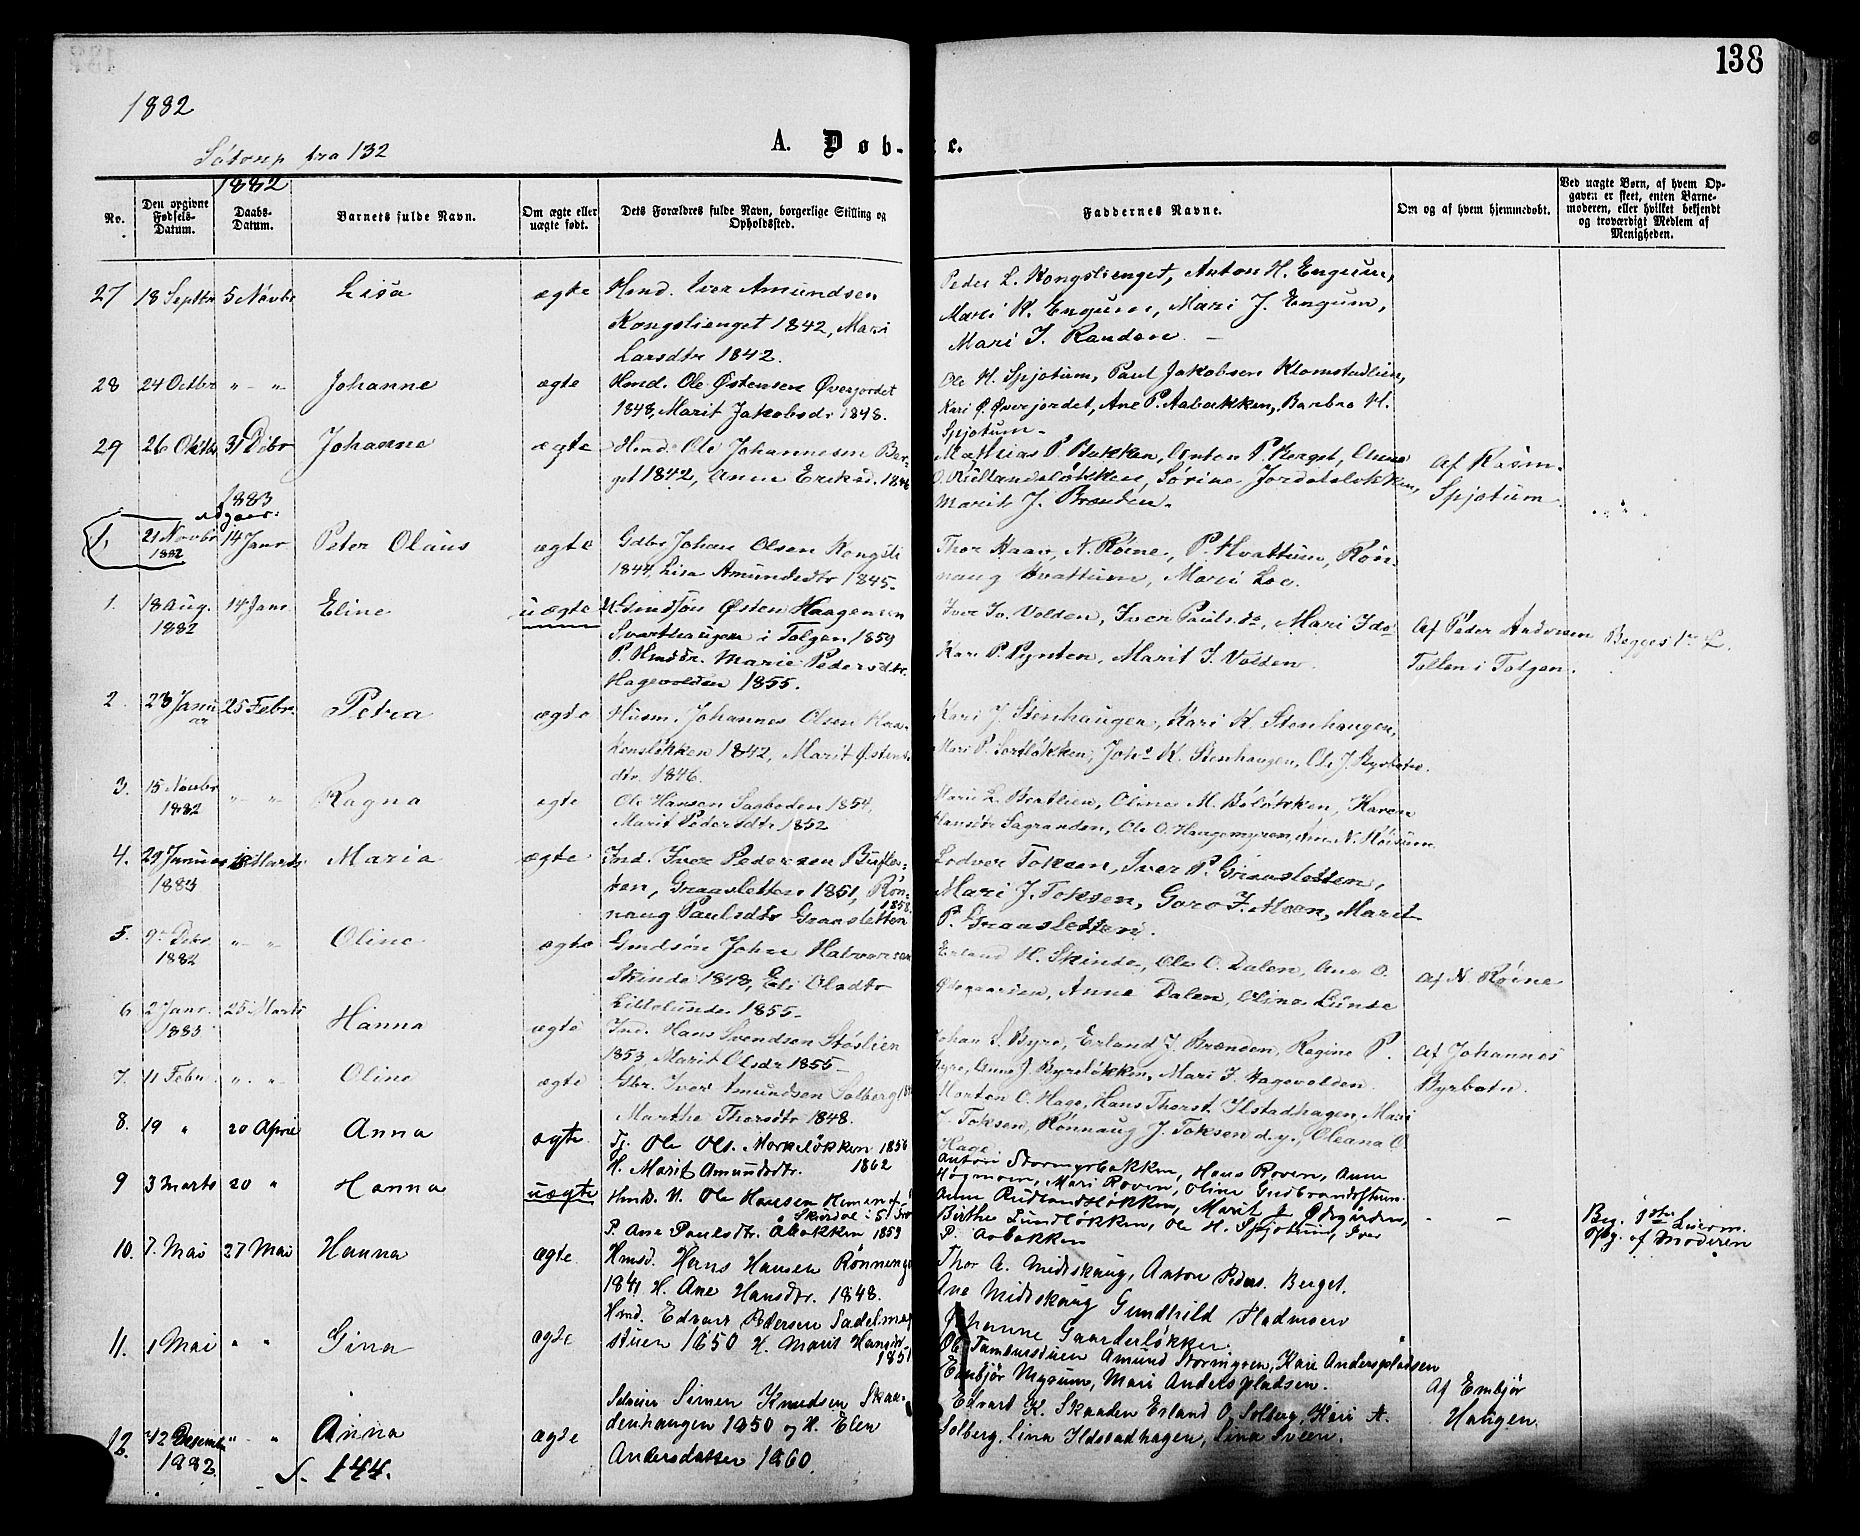 138
1882
Sødorp fra 132
A. Døb- te.
1882
No.
Den opgivne Fødsels-Datum.
Daabs-Datum.
Barnets fulde Navn.
Om ægte eller uægte født.
Dets Forældres fulde Navn, borgerlige Stilling og Opholdssted.
Faddernes Navne.
Om og af hvem hjemmedøbt.
Ved uægte Børn, af hvem Opgaven er skeet, enten Barnemoderen, eller hvilket bekjendt og troværdigt Medlem af Menigheden.
27 18 Septbr 5 Novbr Lisa ægte Hmd. Iver Amundsen
Kongslienget 1842, Mari
Larsdtr 1842.
Peder L. Kongslienget, Anton H. Engum,
Mari H. Engum, Mari J. Engum,
Mari I. Randen.
28 24 Octbr " - " Johanne ægte Hmd. Ole Østensen Øverjordet
1848, Marit Jakobsdr. 1848.
Ole H. Spjotum, Paul Jakobsen Klomstadlien,
Kari Ø. Øverjordet, Ane P. Aabakken, Barbro H.
Spjotum.
29 26 Oktbr 31 Dcbr Johanne ægte Hmd. Ole Johannesen Ber-
get 1842, Anne Eriksd. 1846
Mathias P. Bakken, Anton P. Berget, Anne
O. Rudlandsløkken, Sørine Jordetsløkken,
Marit J. Brænden.
Af Rasm.
Spjotum.
1883
1. 21 Novbr 14 Janr Peter Olaus ægte Gdbr Johan Olsen Kongsli
1882
1844, Lisa Amundsdtr 1845.
Thor Haav, N. Røine, P. Hvattum, Røn-
naug Hvattum, Mari Loe.
1. 18 Aug. 14 Janr Eline uægte U. Gmdsøn Østen Haagensen
1882
Svarthaugen i Tolgen 1859
P. Hmdtr. Marie Pedersdtr.
Hagevolden 1855.
Iver Iv. Volden, Iver Pauls. do, Mari I. do
Kari P. Pynten, Marit I. Volden.
Af Peder Andersen
Tollen i Tolgen.
Begges 1ste L.
2. 23 Janu- 25 Febr. Petra ægte Husm. Johannes Olsen Haa-
ar
kensløkken 1842, Marit Østens-
dtr. 1846.
Kari J. Stenhaugen, Kari K. Stenhaugen,
Mari P. Sortløkken, Johs K. Stenhaugen, Ole J. Byrbotn.
3. 15 Novbr " - " Ragna ægte Ole Hansen Sagboden 1854,
1882
Marit Pedersdtr 1852
Mari L. Bratlien, Oline M. Bøløkken, Karen
Hansdtr Sagranden, Ole O. Haugemyren, Ane N. Moisum
4. 29 Januar 18 Marts Maria ægte Ind. Iver Pedersen
1883
Graasletten 1851, Røn-
1858
naug Paulsdtr Graasletten
Lodver Toksen, Iver P. Graasletten,
Mari J. Toksen, Goro I. Moen, Marit
P. Graasletten.
5. 9de Dcbr " - " Oline ægte Gmdsøn John Halvorsen
1882
Skinde 1848, Eli Olsdtr
Lillelunde 1855.
Erland H. Skinde, Ole O. Dalen, Ane O.
Ødegaarden, Anne Dalen, Oline Lunde
Af N. Røine
6 2 Janr. 25 Marts Hanna ægte Ind. Hans Svendsen Støslien
1883
1853, Marit Olsdr 1855.
Johan S. Byre, Erland J. Brænden, Regine P.
Byre, Anne J. Byreløkken, Mari I. Hagevolden.
Af Johannes
Byrbotn.
7. 11 Febr. " - " Oline ægte Gbr. Iver Amundsen Solberg
Marthe Thorsdtr 1848.
Morten O. Hage, Hans Thorst. Ilstadhagen, Mari
J. Toksen, Rønnaug J. Toksen d.y., Oleana O
Hage
8. 19 " 20 April Anna ægte Tj. Ole Ols. Morkeløkken 1856
H. Marit Amundsdtr. 1862
Anton Stormyrbakken, Hans Roven, Anne
Høgmoen, Mari Roven, Oline Gudbrandstuen.
9 3 Marts 20 " Hanna uægte Hmds. U. Ole Hansen
P. Ane Paulsdtr. Åbakken 1859
Anne Rudlandsløkken, Marit J. Ødegården,
Birthe Lundløkken, Ole H. Spjotum, Iver
P. Aabakken
- -
Beg. 1ste Leierm.
Opg. af Moderen
10. 7. Mai 27 Mai Hanna ægte. Hmd. Hans Hansen Rønningen
1841 H. Ane Hansdtr. 1848.
Thor A. Midtskaug, Anton Peders. Berget.
Ane Midtskaug Gundhild Fladmoen
Johanne Gaarderløkken.
11. 1 Mai " " Gina ægte Hmd. Edvart Pedersen Sadelmag-
stuen 1850 H. Marit Hansdtr
1851
Ole Tamburstuen Amund Stormyren, Kari Anderspladsen
Embjør Mysum, Mari Anderspladsen.
Af Embjør
Haugen.
12. 12 Desember " - " Anna ægte Simen Knudsen Skaa-
1882.
denhaugen 1850 og H. Elen
Andersdatter 1860.
Edvart K. Skaaden Erland O. Solberg, Kari A.
Solberg, Lina Ildstadhagen, Lina Sveen.
S. 144.